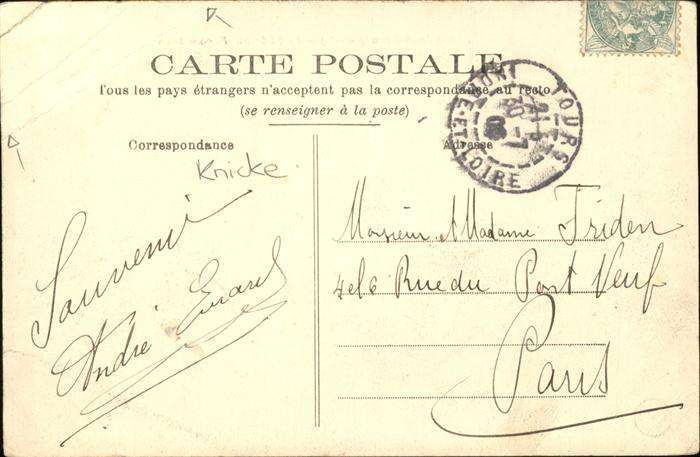 CARTE POSTALE
Tous les pays étrangers n'acceptent pas la correspondance au recto
(se renseigner à la poste)
Correspondance
Knicke
Souvenir
André
Adresse
TOURS
INDRE-ET-LOIRE
Monsieur & Madame Friden
4 et 6 Rue du Port Neuf
Paris